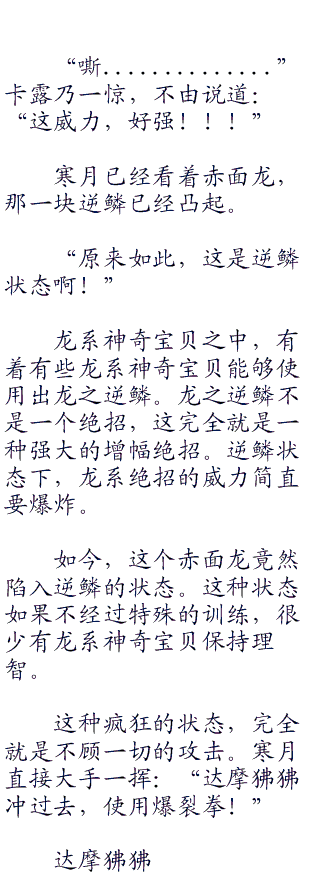 “嘶..............”
卡露乃一惊，不由说道：
“这威力，好强！！！”
寒月已经看着赤面龙，
那一块逆鳞已经凸起。
“原来如此，这是逆鳞
状态啊！”
龙系神奇宝贝之中，有
着有些龙系神奇宝贝能够使
用出龙之逆鳞。龙之逆鳞不
是一个绝招，这完全就是一
种强大的增幅绝招。逆鳞状
态下，龙系绝招的威力简直
要爆炸。
如今，这个赤面龙竟然
陷入逆鳞的状态。这种状态
如果不经过特殊的训练，很
少有龙系神奇宝贝保持理
智。
这种疯狂的状态，完全
就是不顾一切的攻击。寒月
直接大手一挥：“达摩狒狒
冲过去，使用爆裂拳！”
达摩狒狒